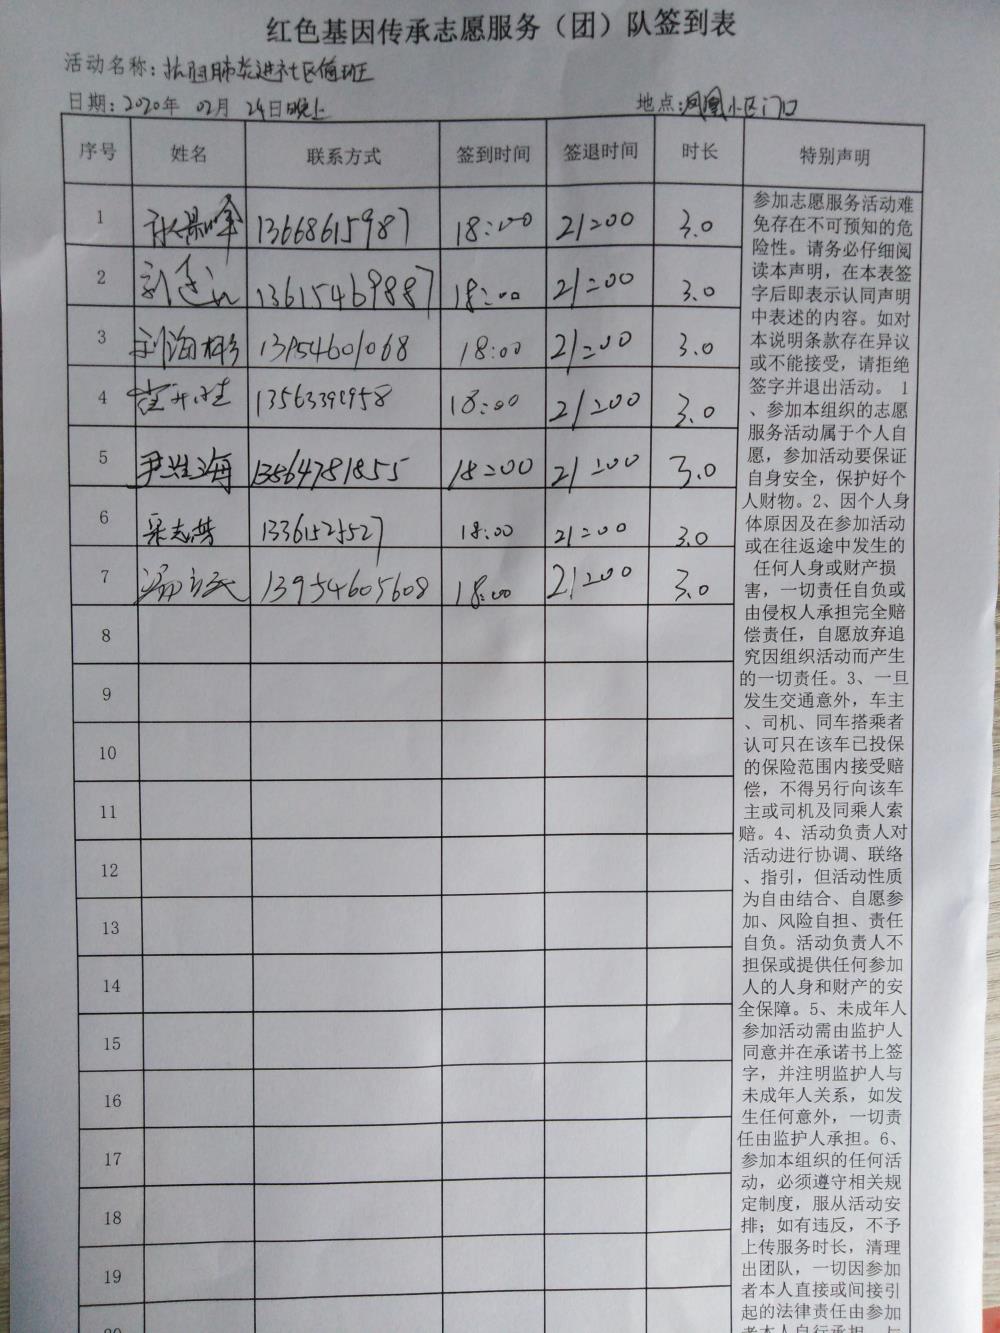 红色基因传承志愿服务（团）队签到表
活动名称：抗击肺炎进社区值班
日期：2020年 02月 24日晚上 地点：凤凰小区门口
序号 姓名 联系方式 签到时间 签退时间 时长 特别声明
1 13668615987 18:00 21:00 3.0
2 13615469887 18:00 21:00 3.0
3 刘海彬 13954601068 18:00 21:00 3.0
4 18:00 21:00 3.0
5 尹浩海 13564781855 18:00 21:00 3.0
6 宋志芳 13361525527 18:00 21:00 3.0
7 13954605608 18:00 21:00 3.0
8
9
10
11
12
13
14
15
16
17
18
19
20
参加志愿服务活动难
免存在不可预知的危
险性。请务必仔细阅
读本声明，在本表签
字后即表示认同声明
中表述的内容。如对
本说明条款存在异议
或不能接受，请拒绝
签字并退出活动。 1
、参加本组织的志愿
服务活动属于个人自
愿，参加活动要保证
自身安全，保护好个
人财物。2、因个人身
体原因及在参加活动
或在往返途中发生的
任何人身或财产损
害，一切责任自负或
由侵权人承担完全赔
偿责任，自愿放弃追
究因组织活动而产生
的一切责任。3、一旦
发生交通意外，车主
、司机、同车搭乘者
认可只在该车已投保
的保险范围内接受赔
偿，不得另行向该车
主或司机及同乘人索
赔。4、活动负责人对
活动进行协调、联络
、指引，但活动性质
为自由结合、自愿参
加、风险自担、责任
自负。活动负责人不
担保或提供任何参加
人的人身和财产的安
全保障。5、未成年人
参加活动需由监护人
同意并在承诺书上签
字，并注明监护人与
未成年人关系，如发
生任何意外，一切责
任由监护人承担。6、
参加本组织的任何活
动，必须遵守相关规
定制度，服从活动安
排；如有违反，不予
上传服务时长，清理
出团队，一切因参加
者本人直接或间接引
起的法律责任由参加
者本人自行承担，与